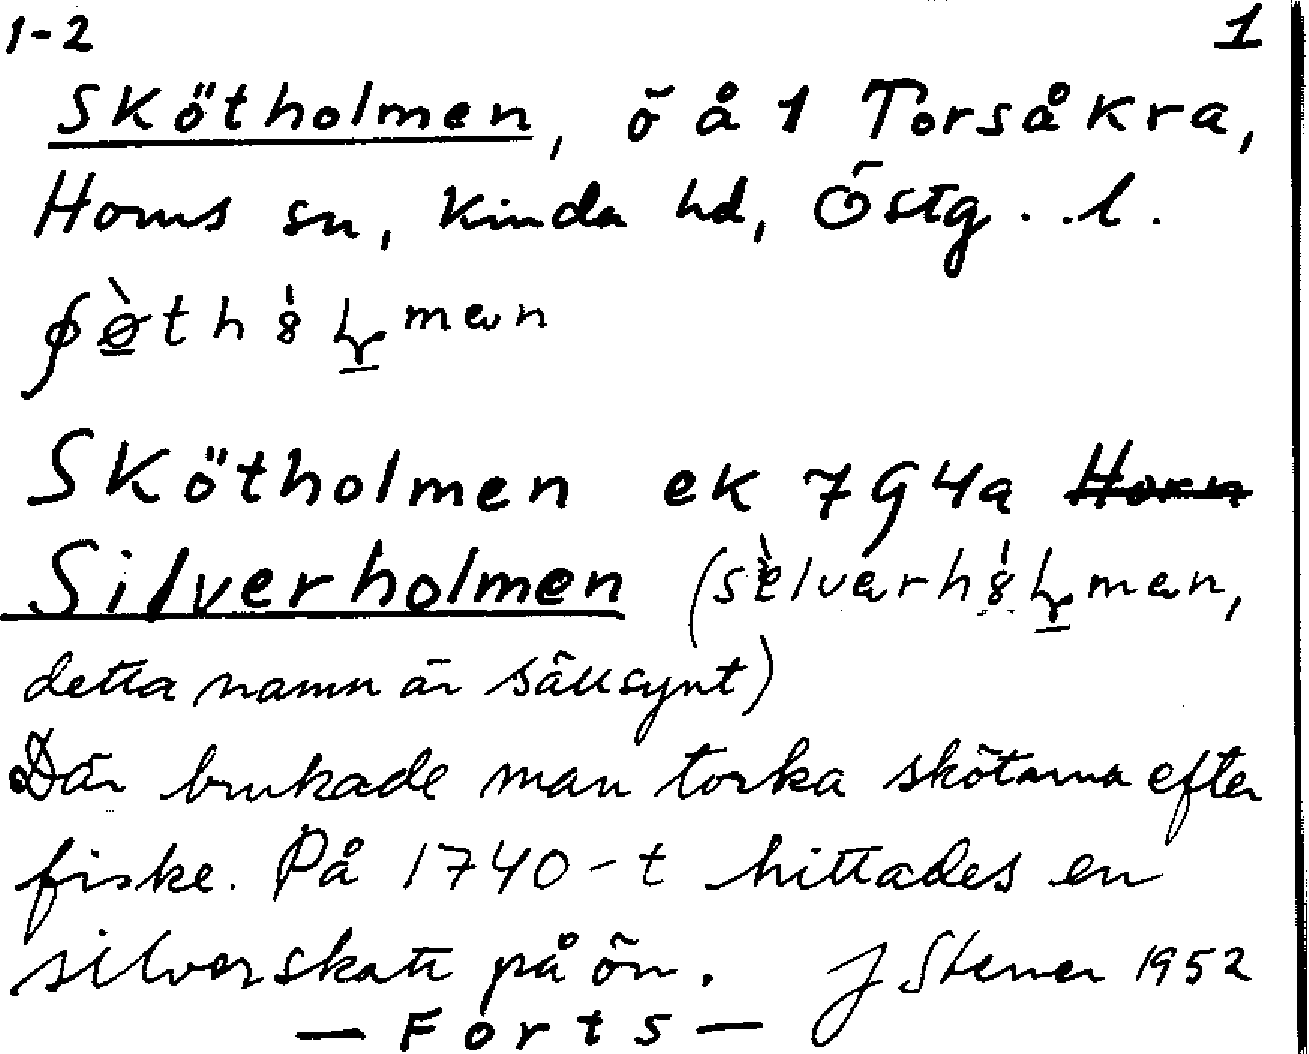 1-2 1
Skötholmen, ö å 1 Torsåkra,
Horns sn, Kinda hd, Östg. . l.
Skötholmen ek 7 G 4a Horn
Silverholmen (
detta namn är sällsynt)
Där brukade man torka skötarna efter
fiske. På 1740-t hittades en
silverskatt på ön. J Stener 1952
— Forts —